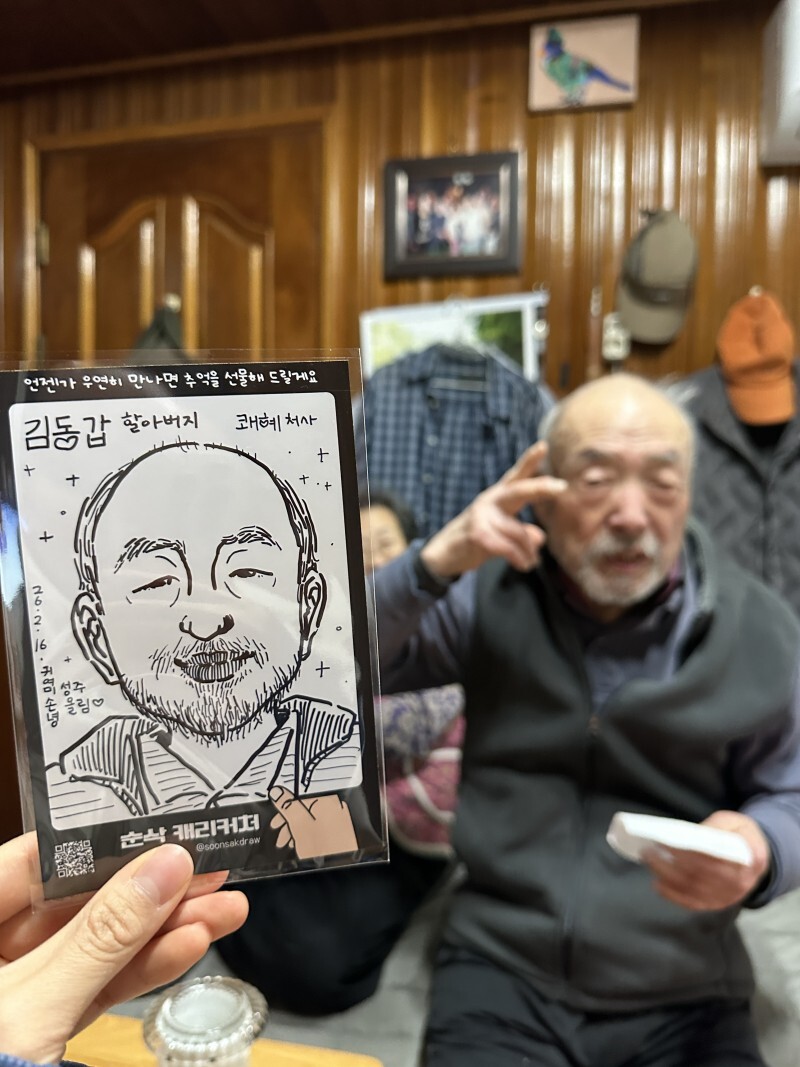 언젠가 우연히 만나면 추억을 선물해 드릴게요
김동갑 할아버지 쾌혜처사
26.2.16.
귀염미손녕
성주
올림♡
순삭 캐리커처
@soonsakdraw